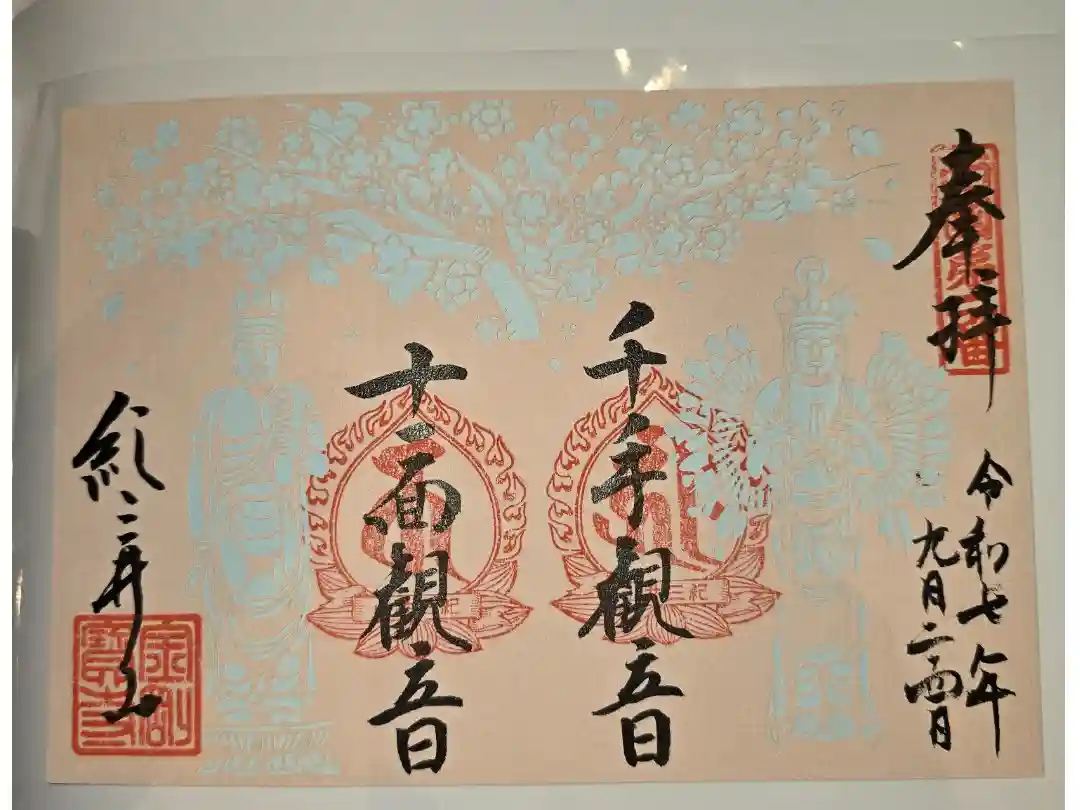 奉拝
令和七年
九月二十四日
千手観音
十一面観音
紀三井山
金剛寶寺